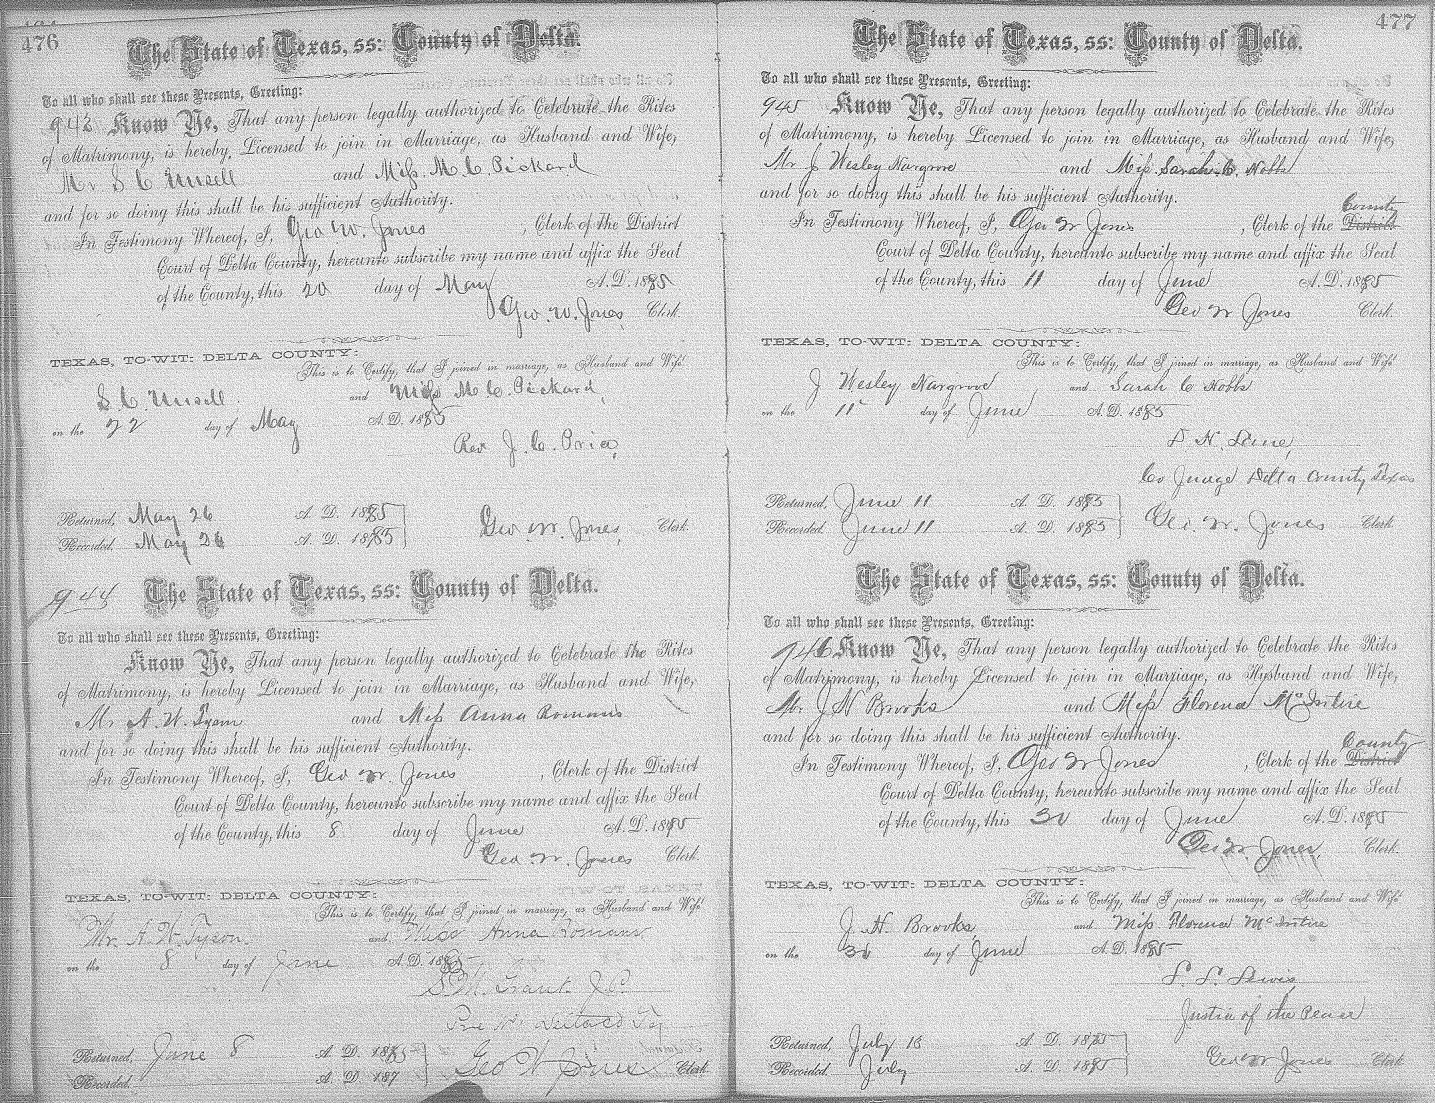 476
The State of Texas, ss: County of Delta.
To all who shall see these Presents, Greeting:
943 Know Ye, That any person legally authorized to Celebrate the Rites
of Matrimony, is hereby Licensed to join in Marriage, as Husband and Wife,
Mr S C Unsell and Miss M C Pickard
and for so doing this shall be his sufficient Authority.
In Testimony Whereof, I, Geo W. Jones, Clerk of the District
Court of Delta County, hereunto subscribe my name and affix the Seal
of the County, this 20 day of May A. D. 1885
Geo. W. Jones, Clerk.
TEXAS, TO-WIT: DELTA COUNTY:
This is to Certify, that I joined in marriage, as Husband and Wife
S. C. Unsell and Miss M C. Pickard,
on the 22 day of May A. D. 1885
Rev J. C. Price,
Returned, May 26 A. D. 1885
Recorded, May 26 A. D. 1885
Geo W. Jones, Clerk
944 The State of Texas, ss: County of Delta.
To all who shall see these Presents, Greeting:
Know Ye, That any person legally authorized to Celebrate the Rites
of Matrimony, is hereby Licensed to join in Marriage, as Husband and Wife,
Mr A. W. Tyson and Miss Anna Romans
and for so doing this shall be his sufficient Authority.
In Testimony Whereof, I, Geo W. Jones, Clerk of the District
Court of Delta County, hereunto subscribe my name and affix the Seal
of the County, this 8 day of June A. D. 1885
Geo. W. Jones Clerk.
TEXAS, TO-WIT: DELTA COUNTY:
This is to Certify, that I joined in marriage, as Husband and Wife
Mr. A. W. Tyson. and Miss Anna Romans
on the 8 day of June A. D. 1885
S. M. Grant J. P.
Returned, June 8 A. D. 1885
Recorded, A. D. 187
Geo W Jones Clerk
477
The State of Texas, ss: County of Delta.
To all who shall see these Presents, Greeting:
945 Know Ye, That any person legally authorized to Celebrate the Rites
of Matrimony, is hereby Licensed to join in Marriage, as Husband and Wife,
Mr J Wesley Hargrove and Miss Sarah C. Hobbs
and for so doing this shall be his sufficient Authority.
County
In Testimony Whereof, I, Geo W Jones, Clerk of the District
Court of Delta County, hereunto subscribe my name and affix the Seal
of the County, this 11 day of June A. D. 1885
Geo W Jones Clerk.
TEXAS, TO-WIT: DELTA COUNTY:
This is to Certify, that I joined in marriage, as Husband and Wife
J Wesley Hargrove and Sarah C Hobbs
on the 11 day of June A. D. 1885
Co Judge Delta County Texas
Returned, June 11 A. D. 1885
Recorded June 11 A. D. 1885
Geo. W. Jones Clerk
The State of Texas, ss: County of Delta.
To all who shall see these Presents, Greeting:
946 Know Ye, That any person legally authorized to Celebrate the Rites
of Matrimony, is hereby Licensed to join in Marriage, as Husband and Wife,
Mr. J H Brooks and Miss Florence McIntire
and for so doing this shall be his sufficient Authority.
County
In Testimony Whereof, I, Geo W Jones, Clerk of the District
Court of Delta County, hereunto subscribe my name and affix the Seal
of the County, this 30 day of June A. D. 1885
Geo W. Jones, Clerk.
TEXAS, TO-WIT: DELTA COUNTY:
This is to Certify, that I joined in marriage, as Husband and Wife
J. H Brooks, and Miss Florence McIntire
on the 30 day of June A. D. 1885
S. S. Lewis
Justice of the Peace
Returned, July 13 A. D. 1885
Recorded July A. D. 1885
Geo W Jones Clerk